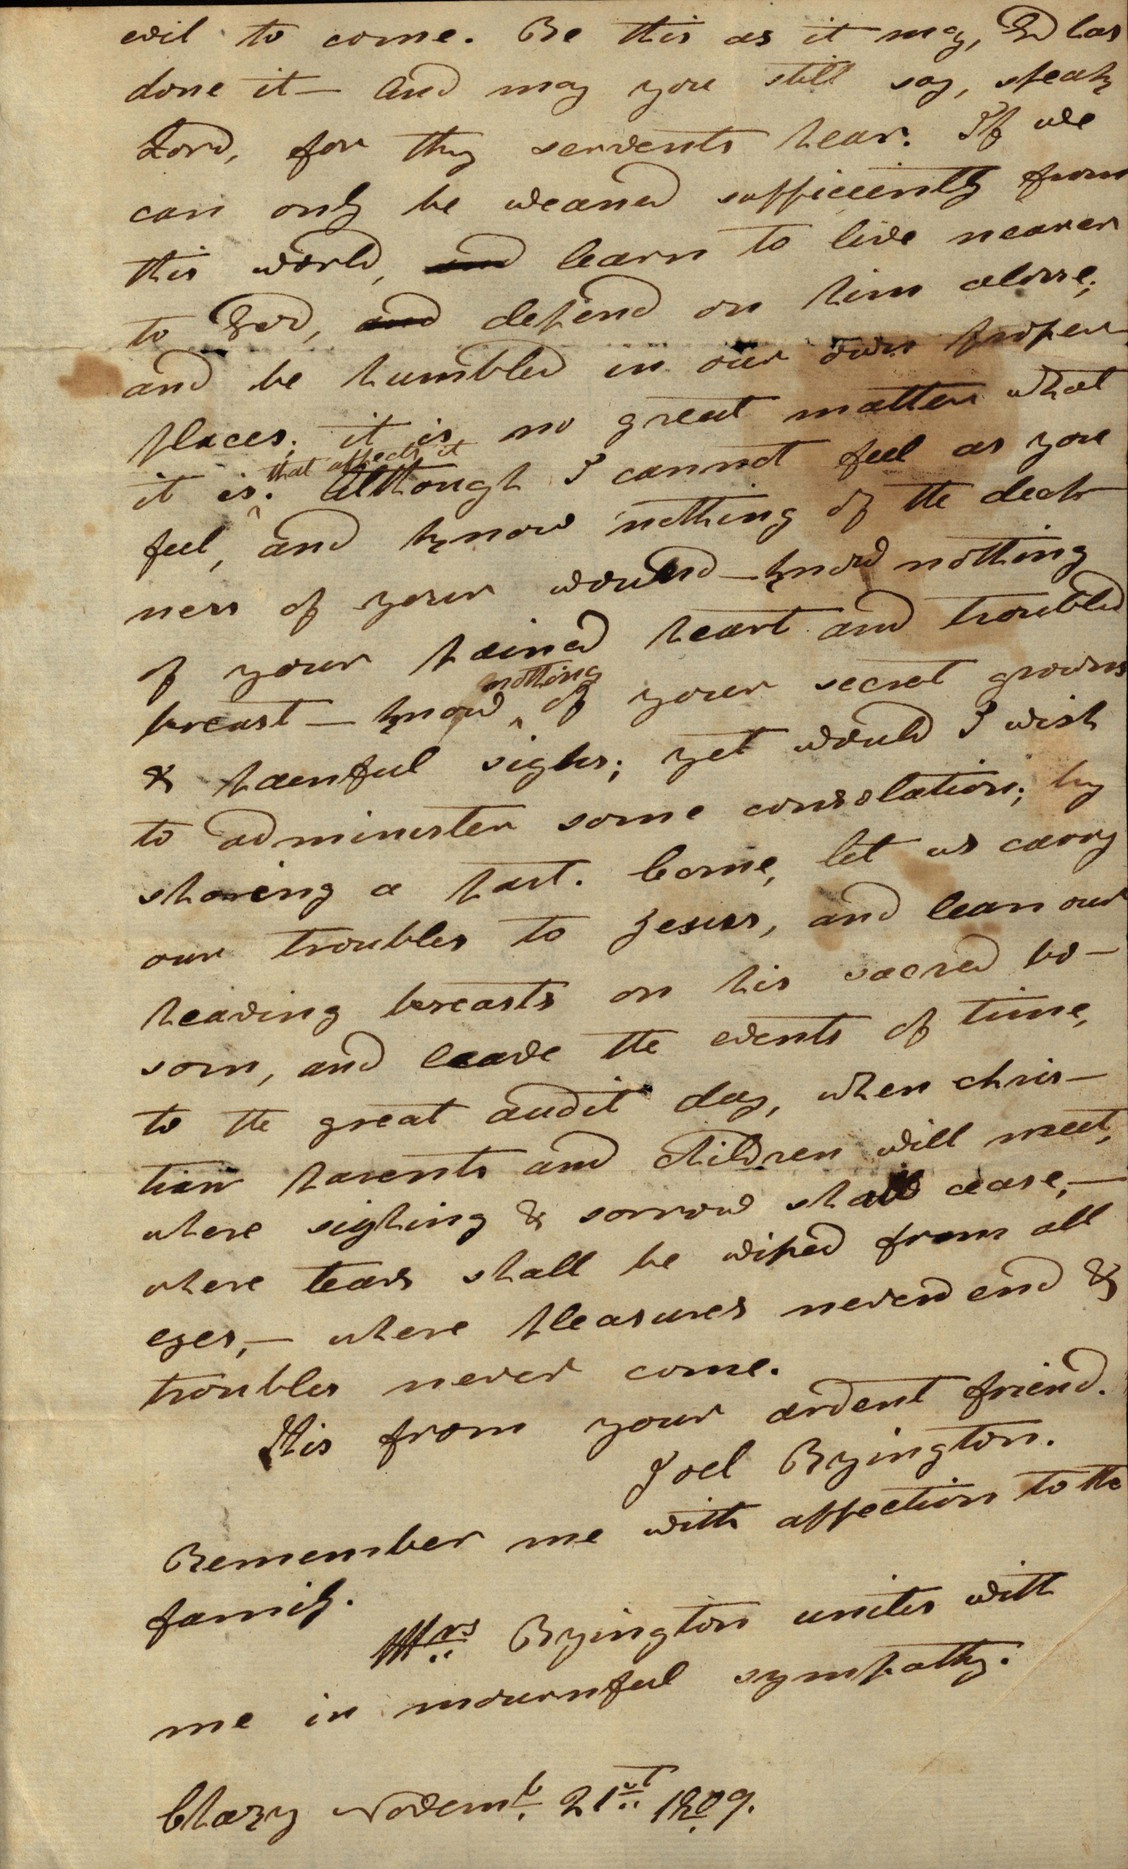 evil to come. Be this as it may, God has
done it — And may you still say, speak
Lord, for thy servents hear. If we
can only be weaned sufficiently from
this world, and learn to live nearer
to God, and depend on him alone;
and be humbled in our own proper
places; it is no great matter what
it is that affects it. Although I cannot feel as you
feel, and know nothing of the deep-
ness of your wound — know nothing
of your pained heart and troubled
breast — know nothing of your secret groans
& painful sighs; yet would I wish
to administer some consolation; by
sharing a part. Come, let us carry
our troubles to Jesus, and lean our
heaving breasts on his sacred bo-
som, and leave the events of time,
to the great audit day, when chris-
tian parents and children will meet,
where sighing & sorrow shall cease, —
where tears shall be wiped from all
eyes, — where pleasures never end &
troubles never come.
This from your ardent friend.
Joel Byington.
Remember me with affection to the
family.
Mrs Byington unites with
me in mournful sympathy.
Chazy Novemb. 21st 1809.